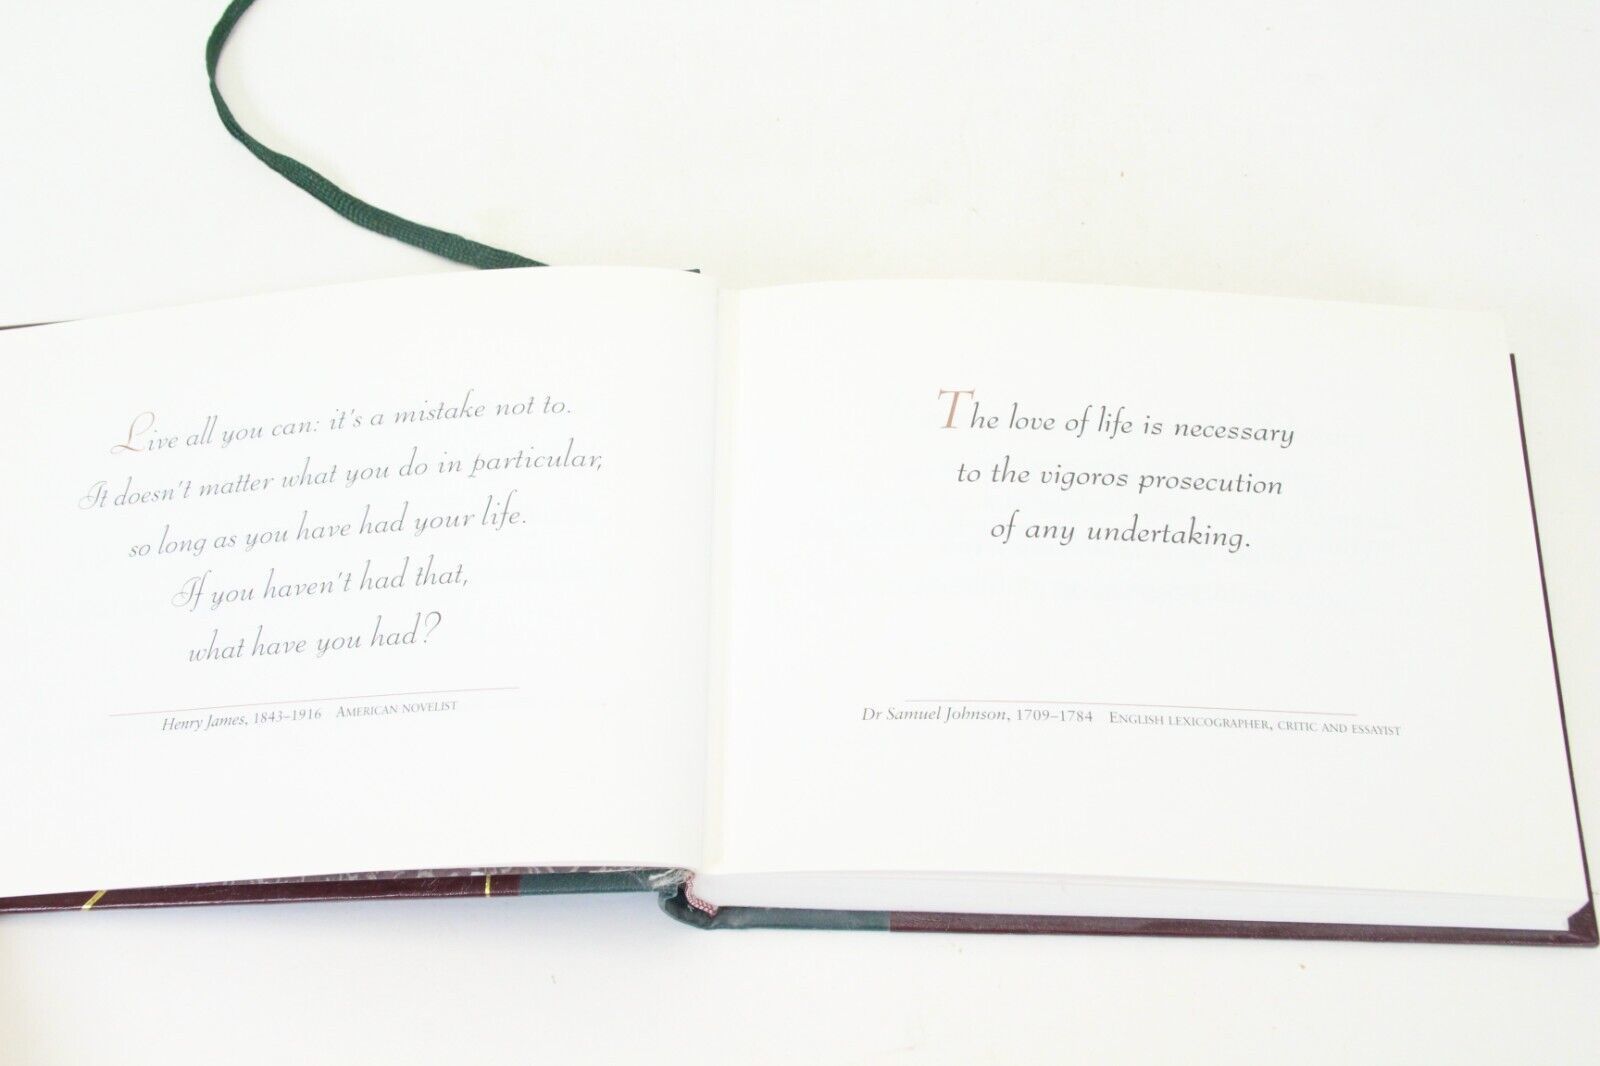 Live all you can: it's a mistake not to.
It doesn't matter what you do in particular,
so long as you have had your life.
If you haven't had that,
what have you had?
Henry James, 1843–1916 AMERICAN NOVELIST
The love of life is necessary
to the vigoros prosecution
of any undertaking.
Dr Samuel Johnson, 1709–1784 ENGLISH LEXICOGRAPHER, CRITIC AND ESSAYIST